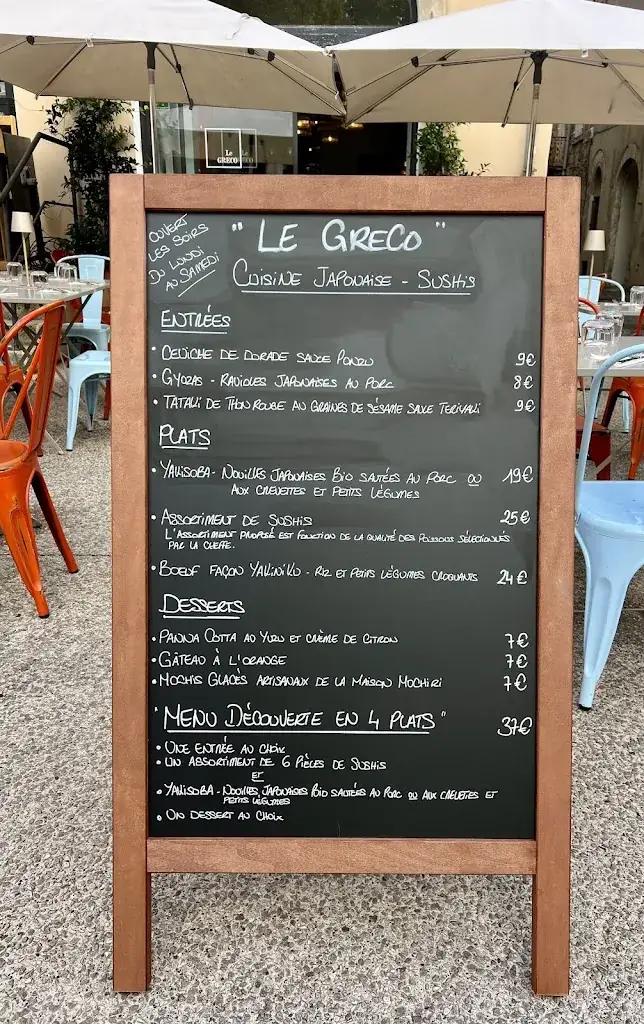 Le
GRECO
OUVERT
LES SOIRS
DU LUNDI
AU SAMEDI
" LE GRECO "
CUISINE JAPONAISE - SUSHIS
ENTRÉES
• CEVICHE DE DORADE SAUCE PONZU 9€
• GYOZAS - RAVIOLES JAPONAISES AU PORC 8€
• TATAKI DE THON ROUGE AU GRAINES DE SÉSAME SAUCE TERIYAKI 9€
PLATS
• YAKISOBA - NOUILLES JAPONAISES BIO SAUTÉES AU PORC OU 19€
AUX CREVETTES ET PETITS LÉGUMES
• ASSORTIMENT DE SUSHIS 25€
L'ASSORTIMENT PROPOSÉ EST FONCTION DE LA QUALITÉ DES POISSONS SÉLECTIONNÉS
PAR LA CHEFFE.
• BOEUF FAÇON YAKINIKU - RIZ ET PETITS LÉGUMES CROQUANTS 24€
DESSERTS
• PANNA COTTA AU YUZU ET CRÈME DE CITRON 7€
• GÂTEAU À L'ORANGE 7€
• MOCHIS GLACÉS ARTISANAUX DE LA MAISON MOCHIRI 7€
"MENU DÉCOUVERTE EN 4 PLATS" 37€
• UNE ENTRÉE AU CHOIX
• UN ASSORTIMENT DE 6 PIÈCES DE SUSHIS
ET
• YAKISOBA - NOUILLES JAPONAISES BIO SAUTÉES AU PORC OU AUX CREVETTES ET
PETITS LÉGUMES
• UN DESSERT AU CHOIX